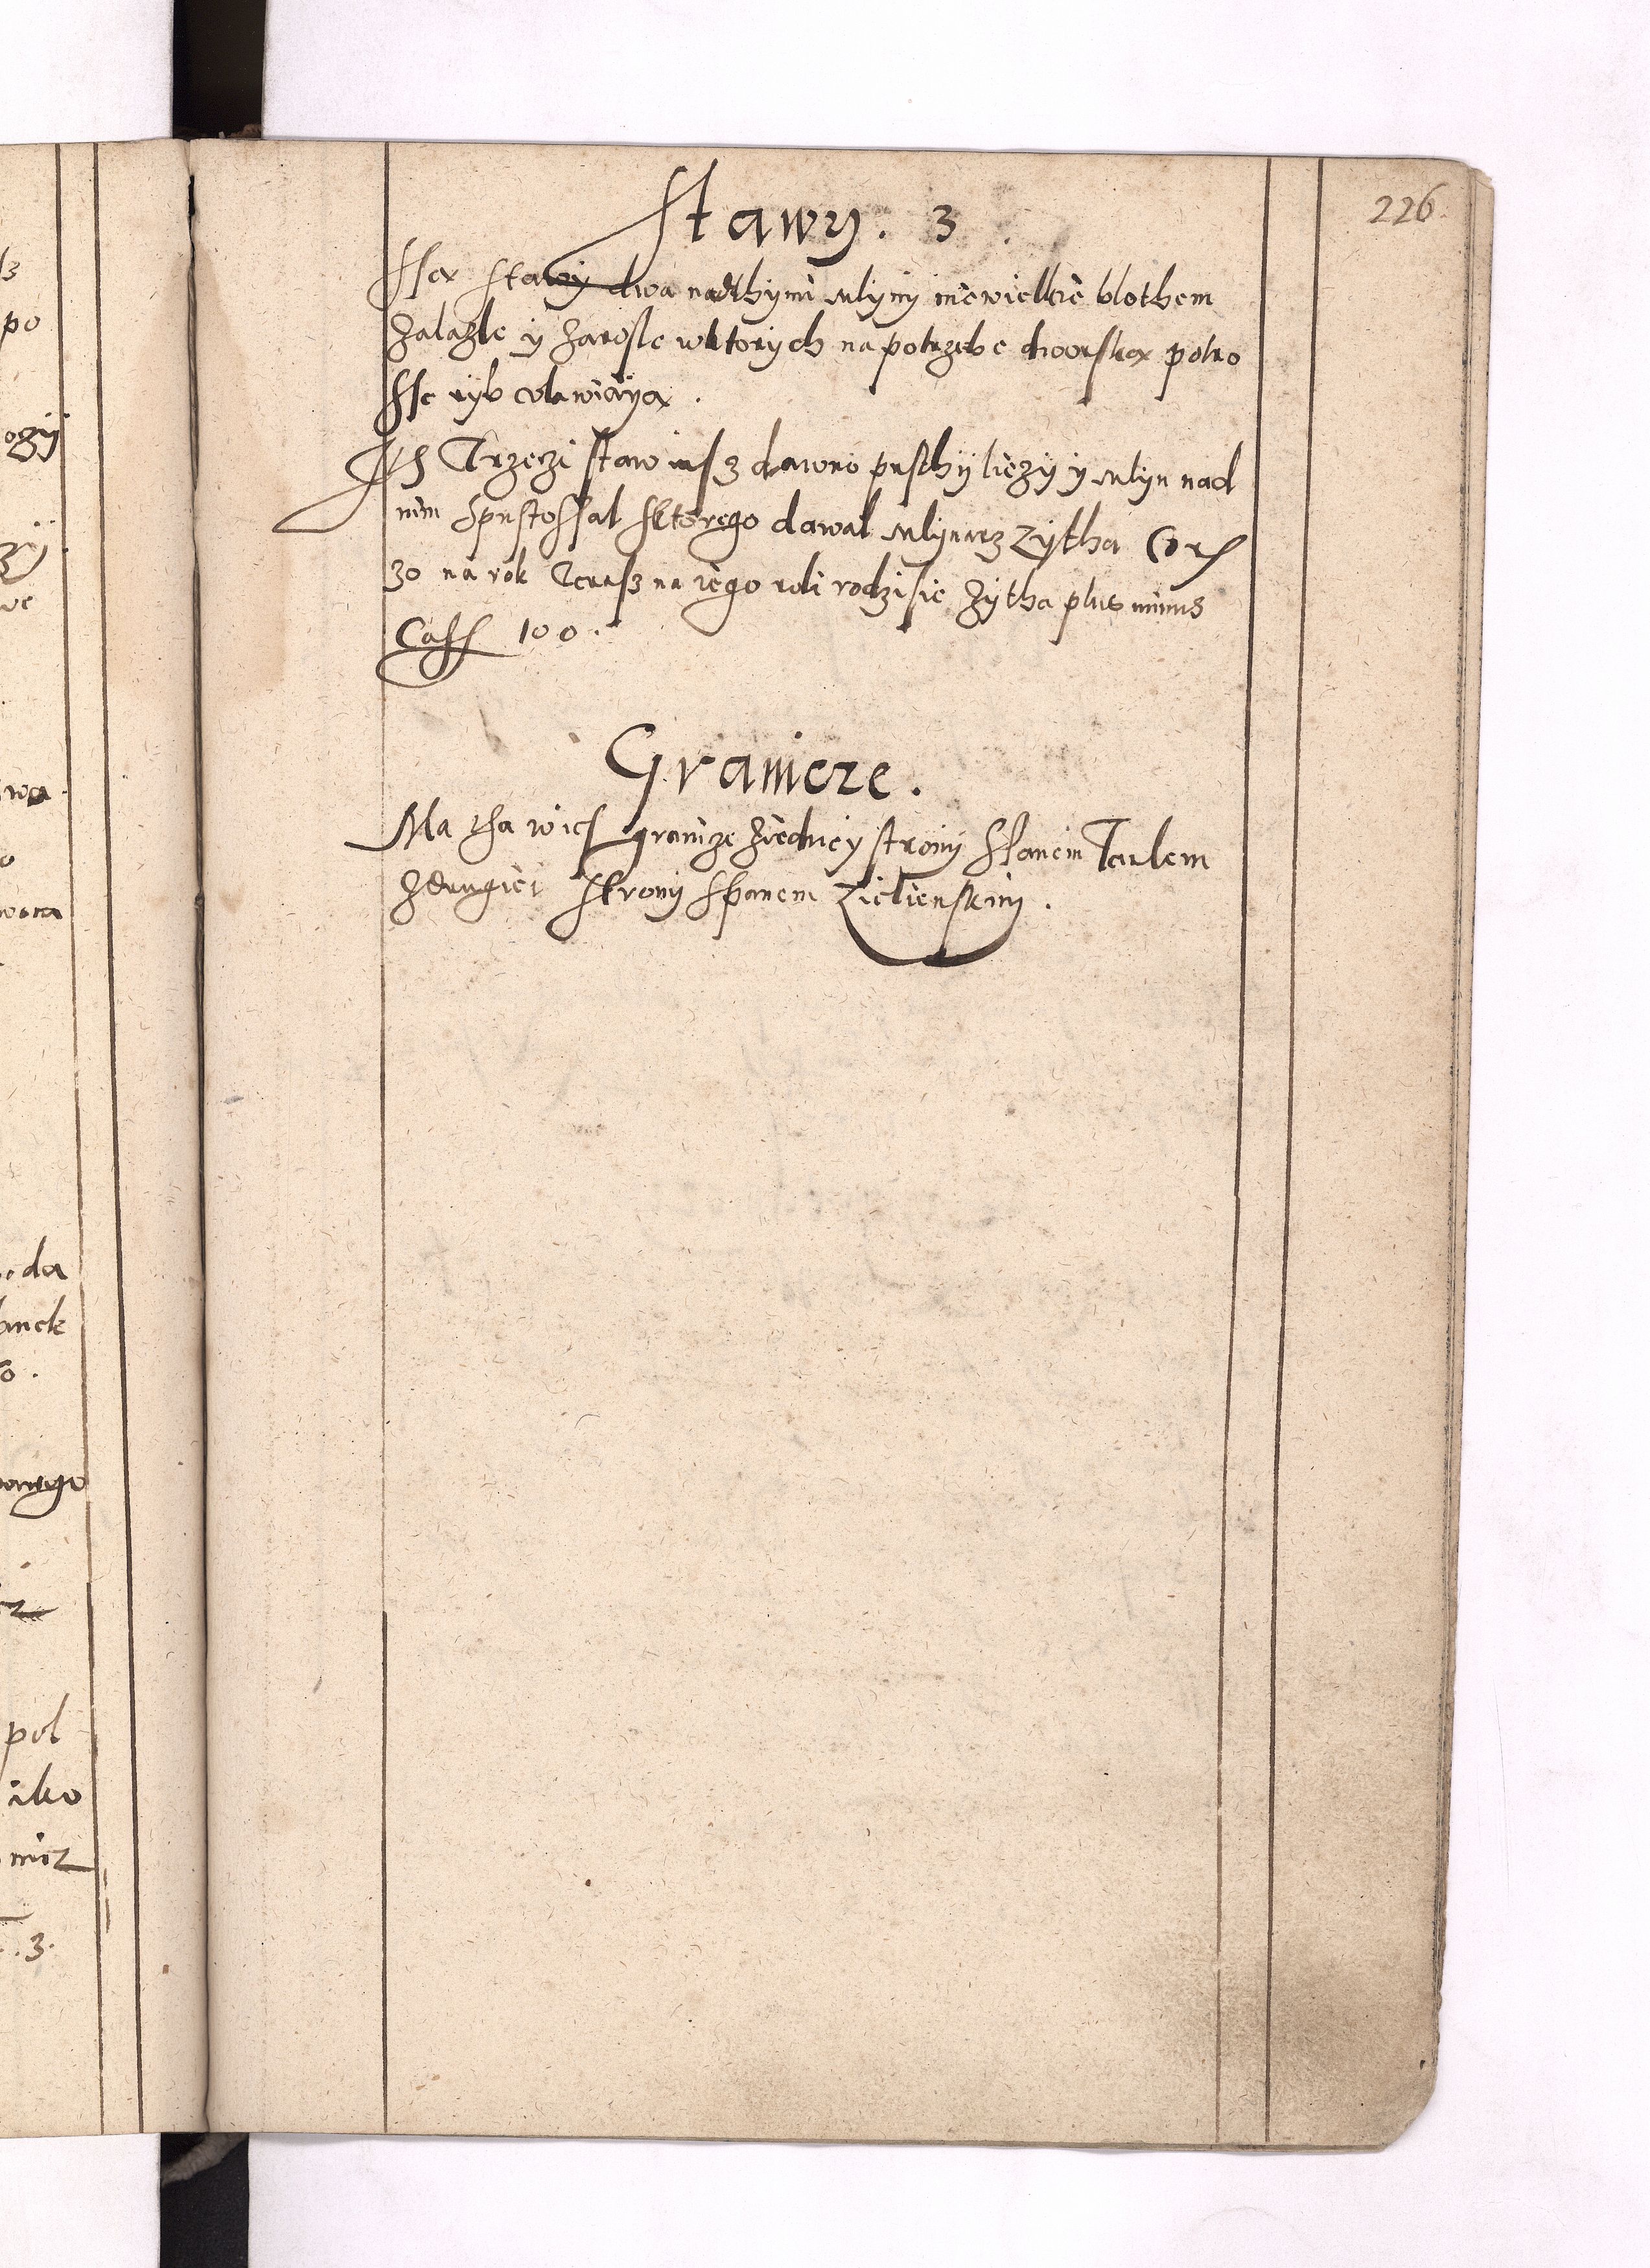 226
Stawy. 3
Ssa Stawy dwa nad thymi mlyny niewielkie blothem
zalazle y zarosle wktorych na potrzebe dworska potro
sse ryb wlawiaya.
Trzeczi staw iusz dawno pusthy liezy y mlyn nad
nim spustossal sktorego dawal mlynarz Zytha Cor
30 na rok Terasz na iego roli rodzi sie zytha plus minus
Cass 100.
Granicze.
Ma tha wies granicze ziedney strony spanem Tarlem
zdrugiei strony spanem Zielienskim.
po
da
pol
3.